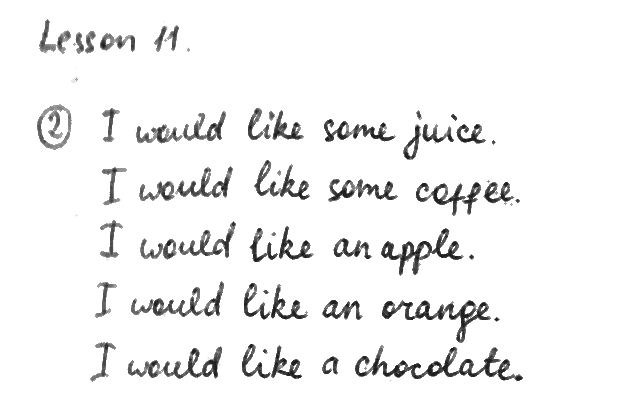 Lesson 11.
② I would like some juice.
I would like some coffee.
I would like an apple.
I would like an orange.
I would like a chocolate.